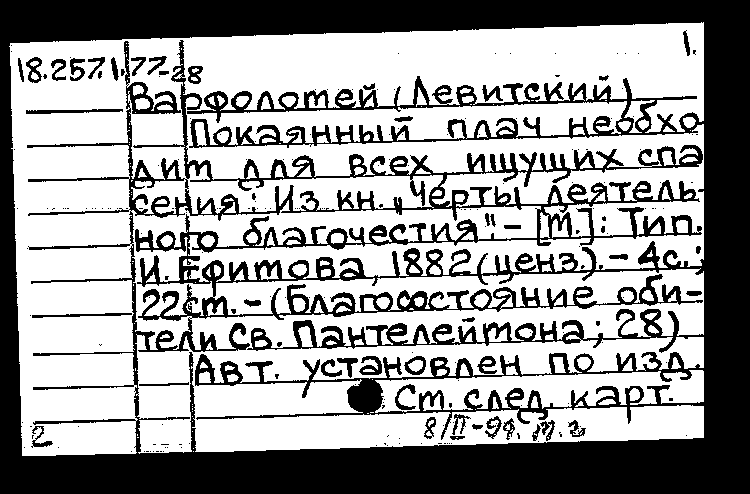 1.
18.257.1.77-28
Варфоломей (Левитский)
Покаянный плач необхо-
дим для всех, ищущих спа
сения: Из кн. „Черты деятель-
ного благочестия". - [М.]: Тип.
И. Ефимова, 1882 (ценз.). - 4с.;
22см. - (Благосостояние оби-
тели Св. Пантелеймона; 28).
Авт. установлен по изд.
См. след. карт.
2